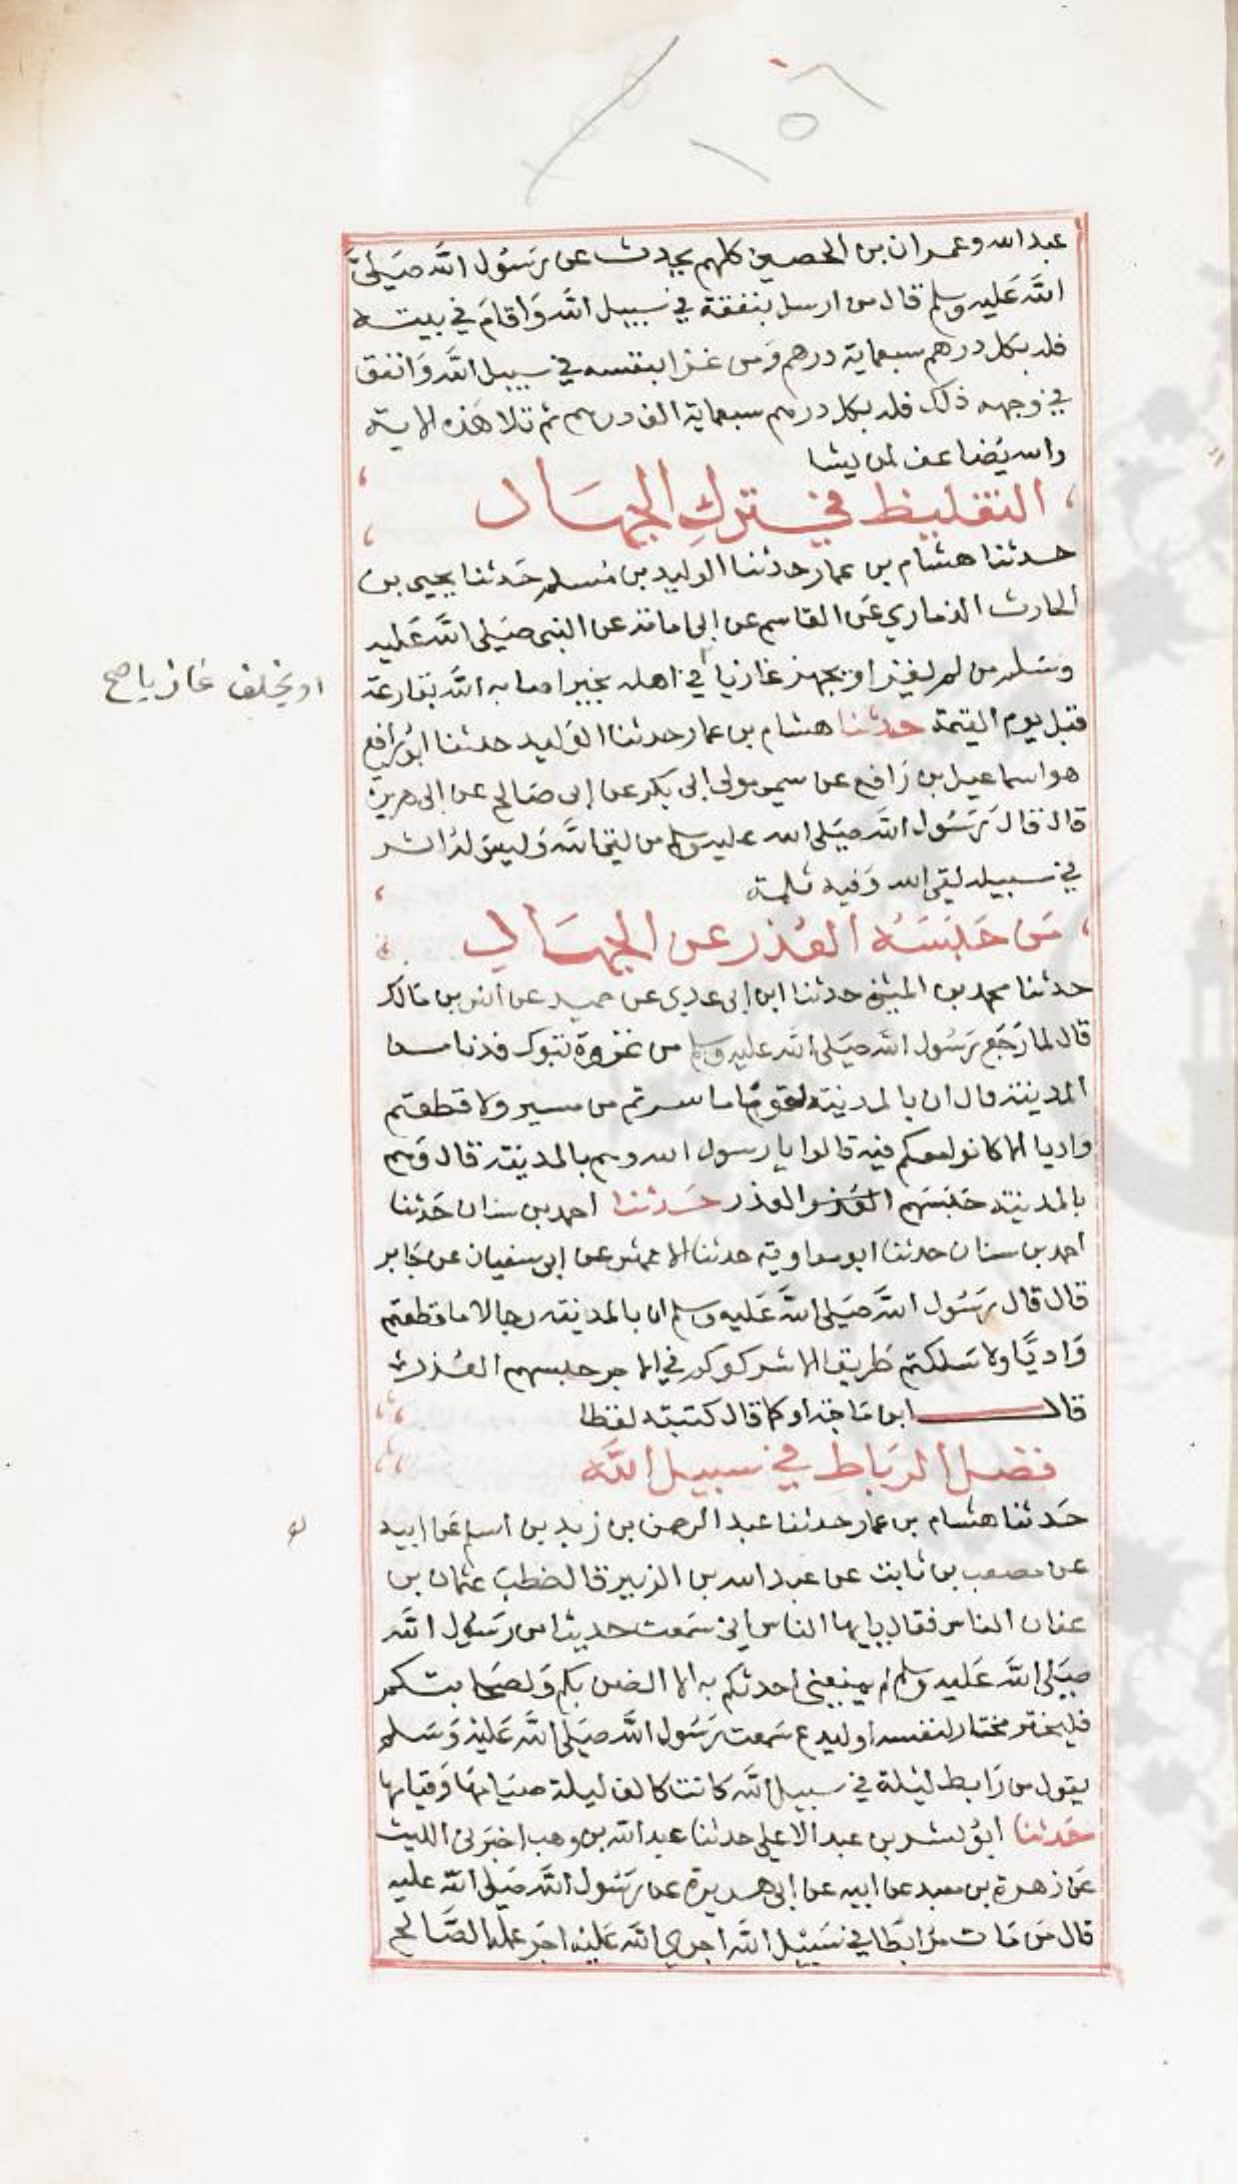 عبد الله وعمران بن الحصين كلهم يحدث عن رسول الله صلى
الله عليه وسلم قال من ارسل بنفقة في سبيل الله واقام في بيته
فله بكل درهم سبعماية درهم ومن غزا بنفسه في سبيل الله وانفق
في وجهه ذلك فله بكل درهم سبعماية الف درهم ثم تلا هذه الاية
والله يضاعف لمن يشا
التغليظ في ترك الجهاد
حدثنا هشام بن عمار حدثنا الوليد بن مسلم حدثنا يحيى بن
الحارث الذماري عن القاسم عن ابي امامة عن النبي صلى الله عليه
وسلم من لم يغز او يجهز غازيا في اهله بخير اصابه الله بقارعة
او يخلف غازيا صح
قبل يوم القيمة حدثنا هشام بن عمار حدثنا الوليد حدثنا ابو رافع
هو اسماعيل بن رافع عن سمي مولى ابي بكر عن ابي صالح عن ابي هريرة
قال قال رسول الله صلى الله عليه وسلم من لقي الله وليس له اثر
في سبيله لقي الله وفيه ثلمة
من حبسه العذر عن الجهاد
حدثنا محمد بن المثنى حدثنا ابن ابي عدي عن حميد عن انس بن مالك
قال لما رجع رسول الله صلى الله عليه وسلم من غزوة تبوك فدنا من
المدينة قال ان بالمدينة لقوما ما سرتم من مسير ولا قطعتم
واديا الا كانوا معكم فيه قالوا يا رسول الله وهم بالمدينة قال وهم
بالمدينة حبسهم العذر حدثنا احمد بن سنان حدثنا
احمد بن سنان حدثنا ابو معاوية حدثنا الاعمش عن ابي سفيان عن جابر
قال قال رسول الله صلى الله عليه وسلم ان بالمدينة رجالا ما قطعتم
واديا ولا سلكتم طريقا الا شركوكم في الاجر حبسهم العذر
قال ابن ماجة او كما قال كتبته لفظا
فضل الرباط في سبيل الله
حدثنا هشام بن عمار حدثنا عبد الرحمن بن زيد بن اسلم عن ابيه
عن مصعب بن ثابت عن عبد الله بن الزبير قال خطب عثمان بن
عفان الناس فقال يا ايها الناس اني سمعت حديثا من رسول الله
صلى الله عليه وسلم لم يمنعني احدثكم به الا الضن بكم وبصحابتكم
فليختر مختار لنفسه او ليدع سمعت رسول الله صلى الله عليه وسلم
يقول من رابط ليلة في سبيل الله كانت كالف ليلة صيامها وقيامها
حدثنا ابو بشر بن عبد الاعلى حدثنا عبد الله بن وهب اخبرني الليث
عن زهرة بن معبد عن ابيه عن ابي هريرة عن رسول الله صلى الله عليه
قال من مات مرابطا في سبيل الله اجري الله عليه اجر عمله الصالح